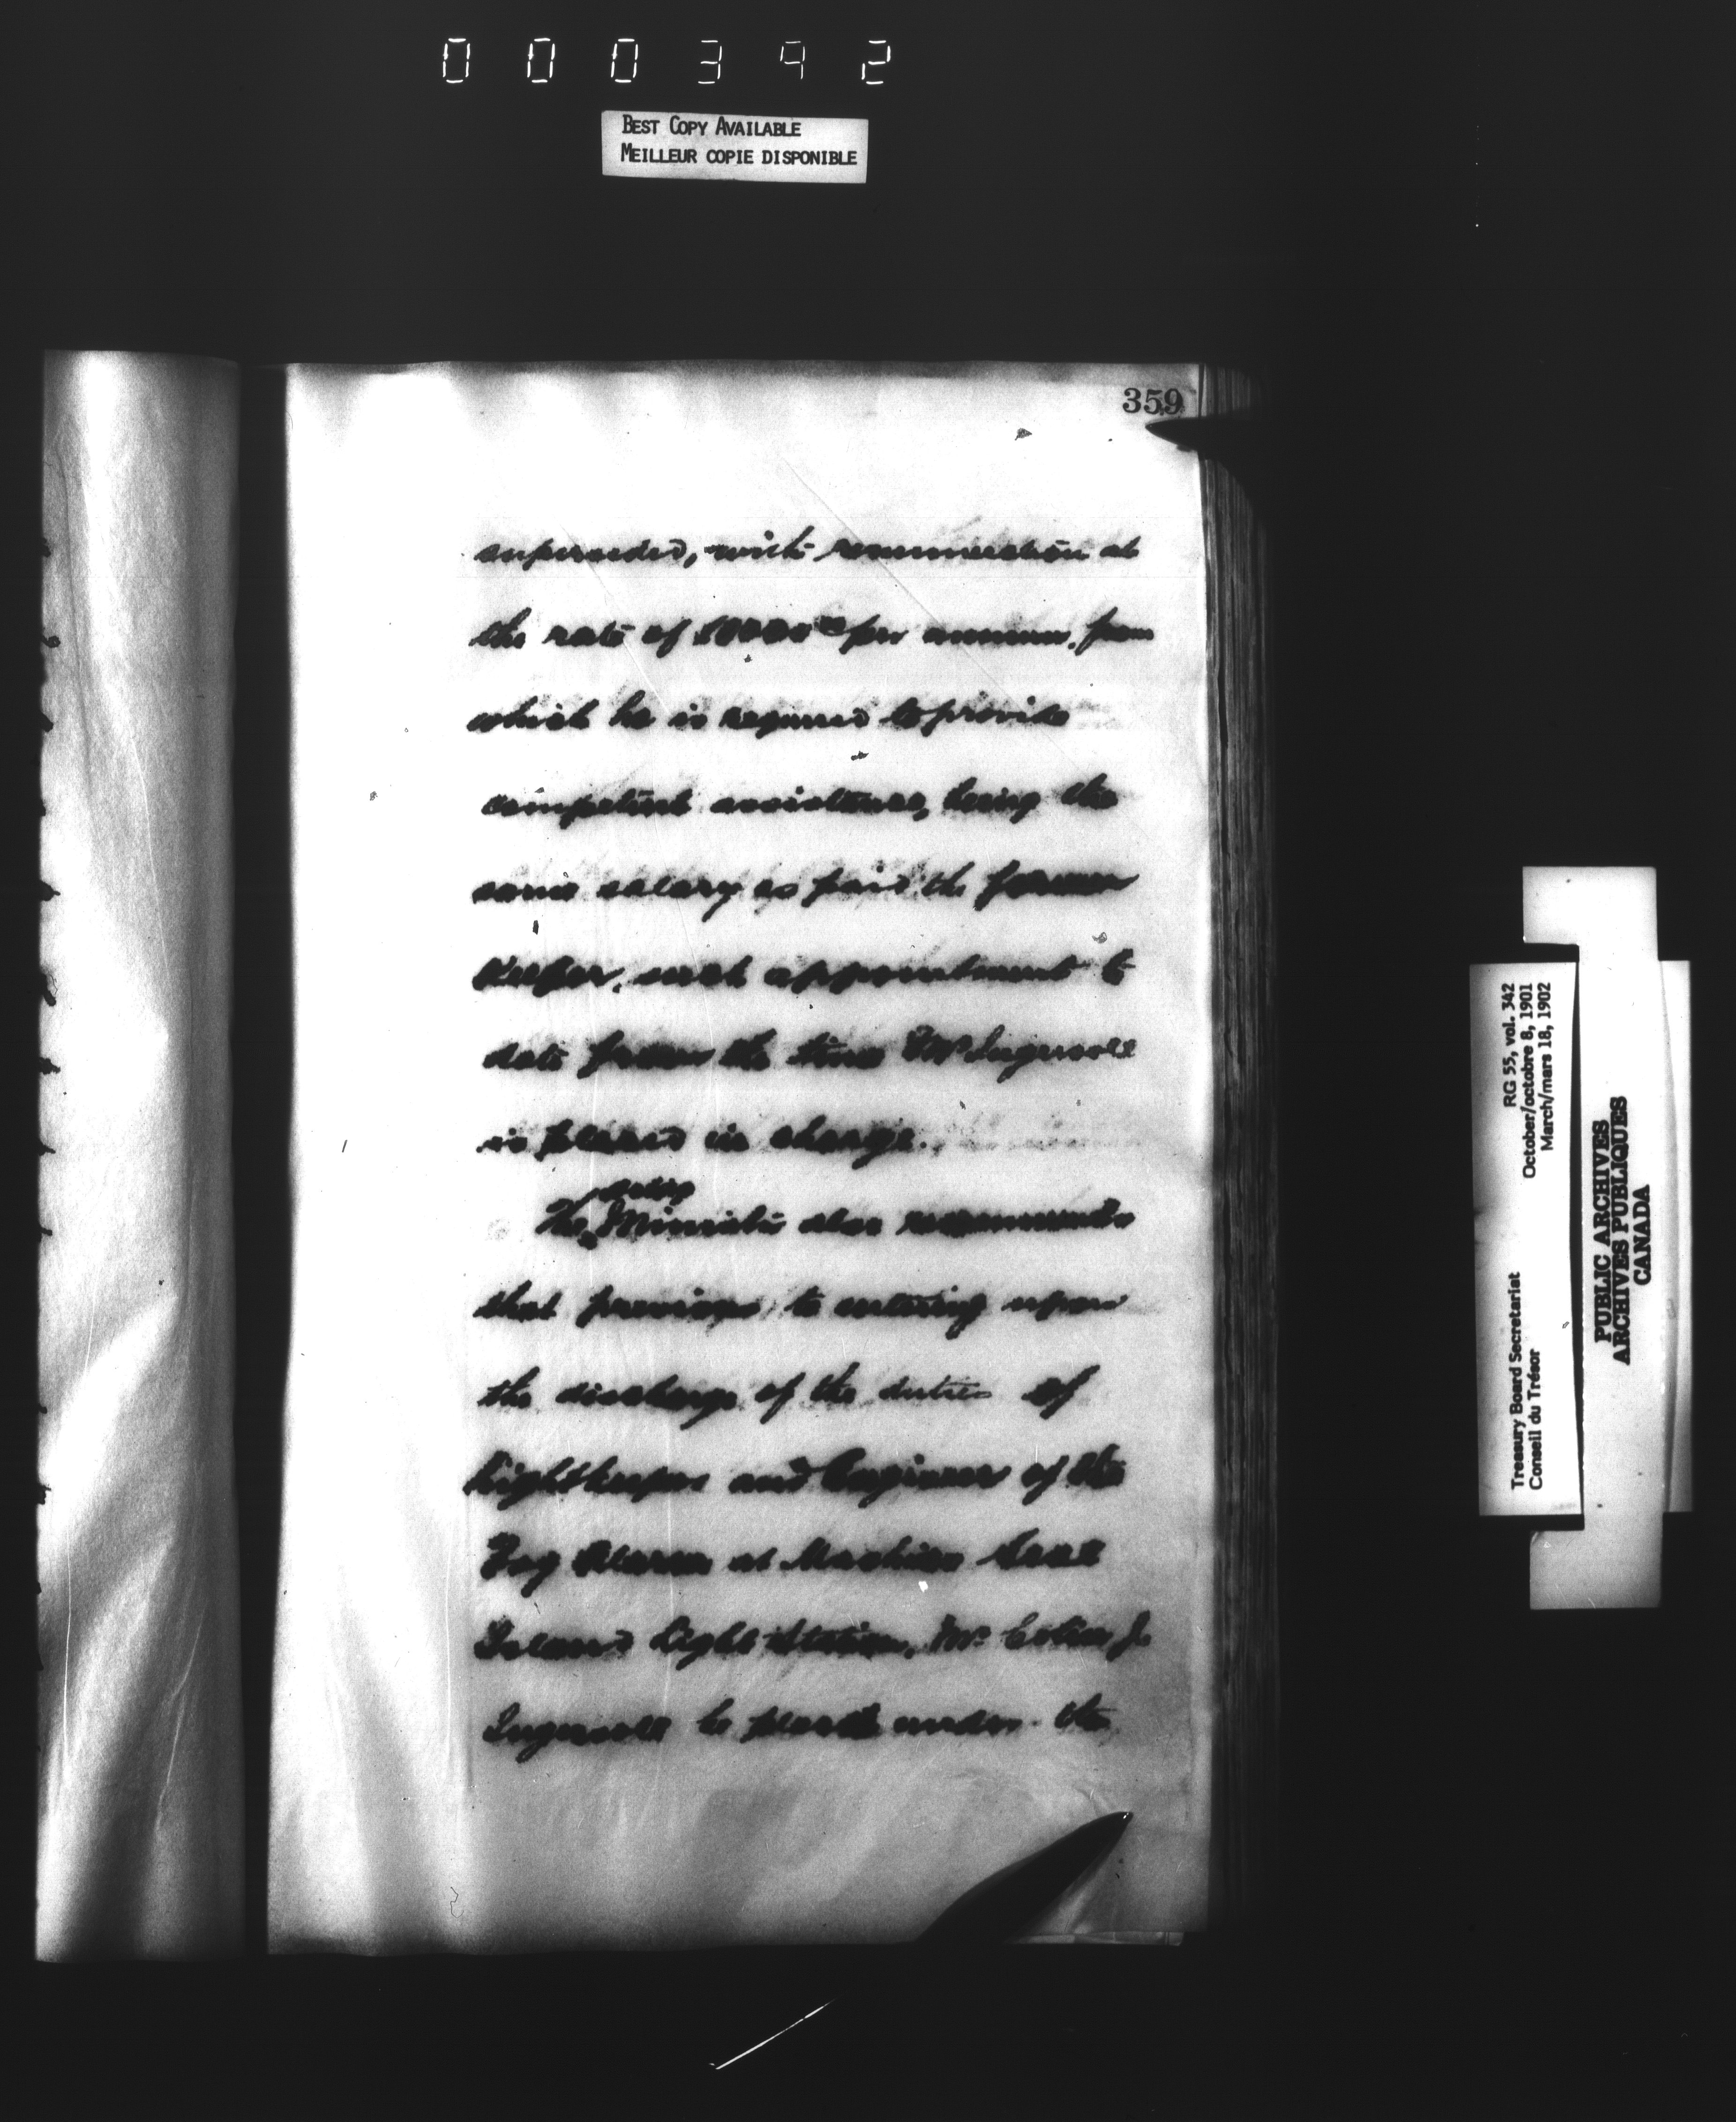 000342
BEST COPY AVAILABLE
MEILLEUR COPIE DISPONIBLE
359
superseded, with remuneration at
the rate of per annum, from
which he is required to provide
competent assistance, being the
same salary as paid the former
Keeper, such appointment to
date from the time Mr Ingersoll
is placed in charge.
acting
The Minister also recommends
that previous to entering upon
the discharge of the duties of
Lightkeeper and Engineer of the
Fog Alarm at Machias Seal
Island Light Station, Mr Colin J.
Ingersoll be placed under the
RG 55, vol. 342
October/octobre 8, 1901
March/mars 18, 1902
Treasury Board Secretariat
Conseil du Trésor
PUBLIC ARCHIVES
ARCHIVES PUBLIQUES
CANADA